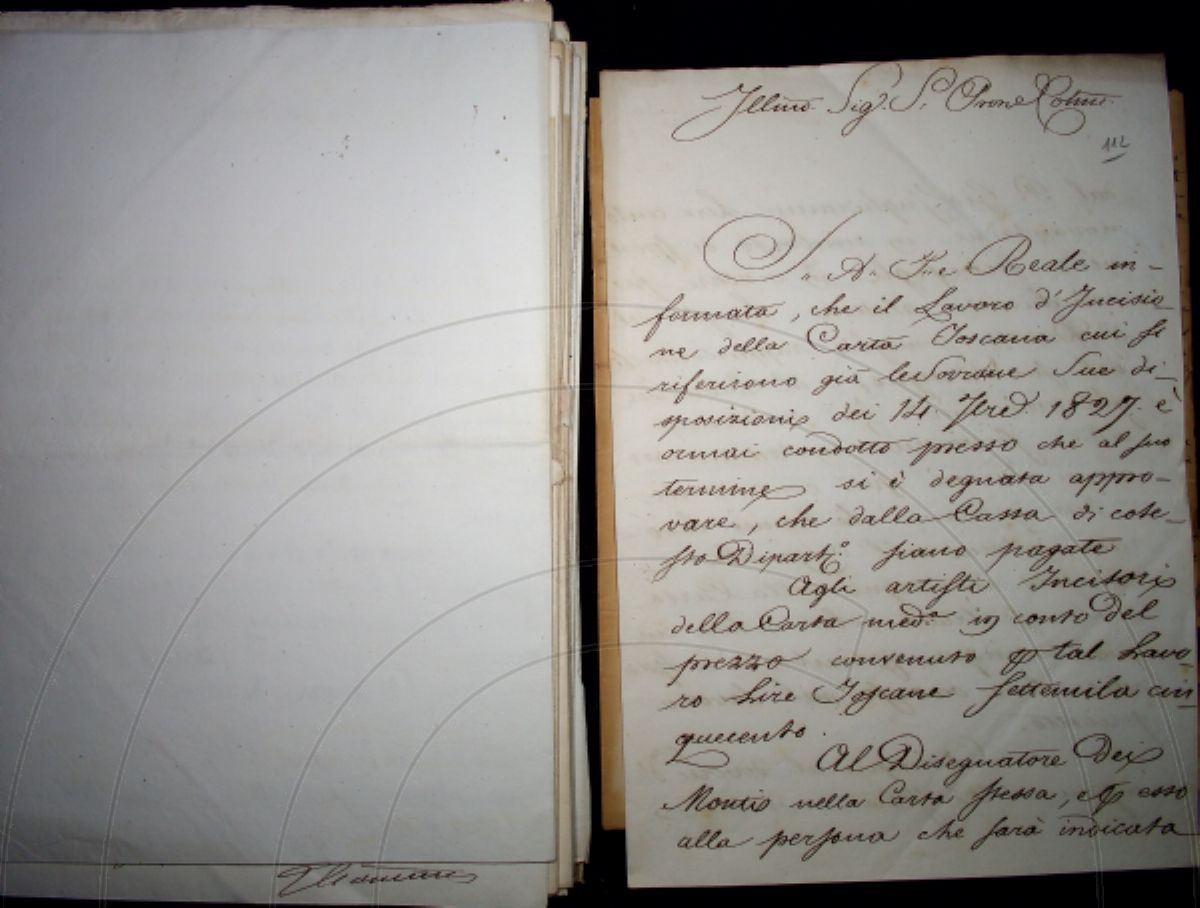 Illmo. Sig. S. Prone Colmo.
112
S.. A.. I.. e Reale in-
formata, che il Lavoro d'Incisio
ne della Carta Toscana cui si
riferiscono già le Sovrane Sue di-
sposizioni dei 14 1827. è
ormai condotto presso che al suo
termine si è degnata appro-
vare, che dalla Cassa di cote-
sto Dipart.º siano pagate
Agli artisti Incisori
della Carta med.ª in conto del
prezzo convenuto p tal Lavo
ro Lire Toscane settemila cin
quecento.
Al Disegnatore dei
Monti nella Carta stessa, e p esso
alla persona che sarà indicata